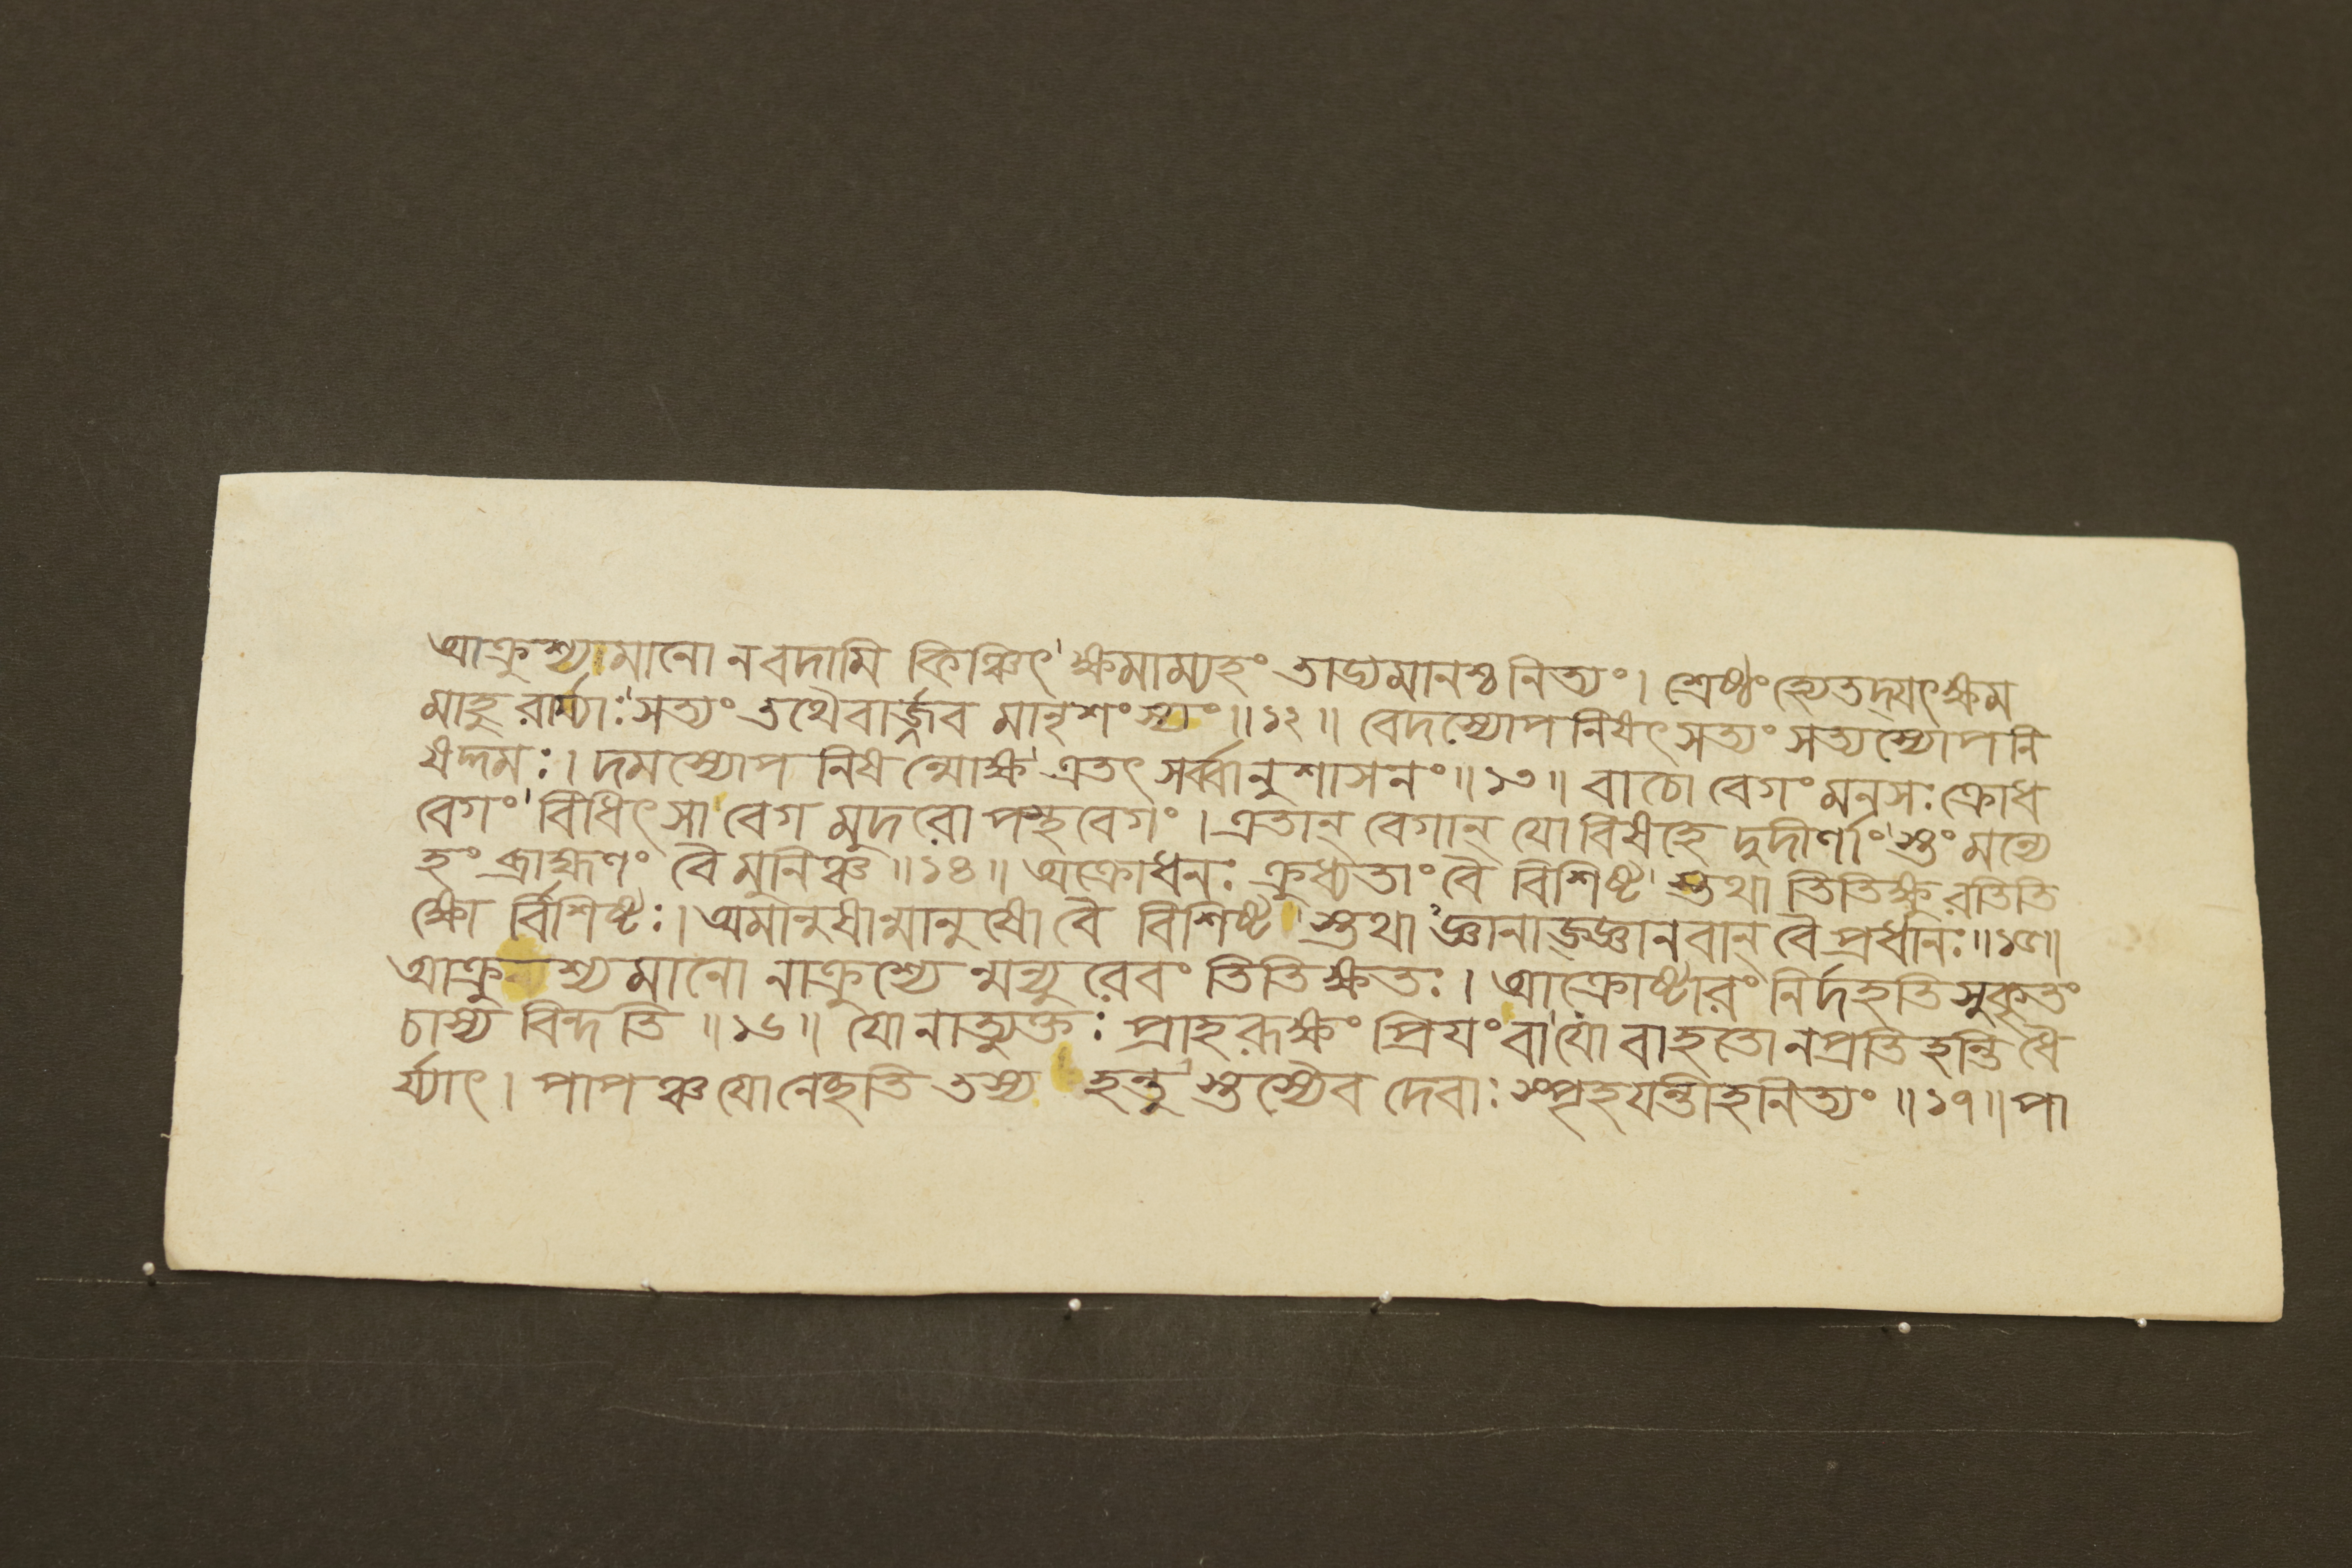 আক্রুশ্যমানো ন বদামি কিঞ্চিৎ' ক্ষমাম্যহং তাড্যমানশ্চ নিত্যং। শ্রেষ্ঠং হ্যেতদ্যৎক্ষম
মাহু রার্য্যাঃ'সত্যং তথৈবার্জ্জব মানৃশংস্যং॥১২॥ বেদস্যোপ নিষৎ সত্যং সত্যস্যোপনি
ষদ্দমঃ। দমস্যোপ নিষ ন্মোক্ষ' এতৎ সর্ব্বানুশাসনং॥১৩॥ বাচো বেগং মনসঃ ক্রোধ
বেগং' বিধিৎসা বেগ মুদরোপস্থবেগং। এতান্ বেগান্ যো বিষহে দুদীর্ণাং'স্তং মন্যে
হং ব্রাহ্মণং বৈ মুনিঞ্চ॥১৪॥ অক্রোধনঃ ক্রুধ্যতাং বৈ বিশিষ্ট' স্তথা তিতিক্ষু রতিতি
ক্ষো র্বিশিষ্টঃ। অমানুষান্মানুষো বৈ বিশিষ্ট' স্তথা'জ্ঞানাজ্জ্ঞানবান্ বৈ প্রধানঃ॥১৫॥
আক্রুশ্যমানো নাক্রুশ্যে ন্মন্যু রেবং তিতিক্ষতঃ। আক্রোষ্টারং নির্দহতি সুকৃতং
চাস্য বিন্দতি॥১৬॥ যো নাত্যুক্তঃ প্রাহ রূক্ষং প্রিযং বা'যো বাহতো ন প্রতি হন্তি ধৈ
র্য্যাৎ। পাপঞ্চ যো নেছতি তস্য হন্তু' স্তস্যেব দেবাঃ স্পৃহযন্তীহ নিত্যং॥১৭॥ পা